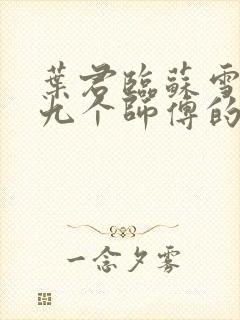 葉君臨蘇雪
九个師傅的
一念夕雾